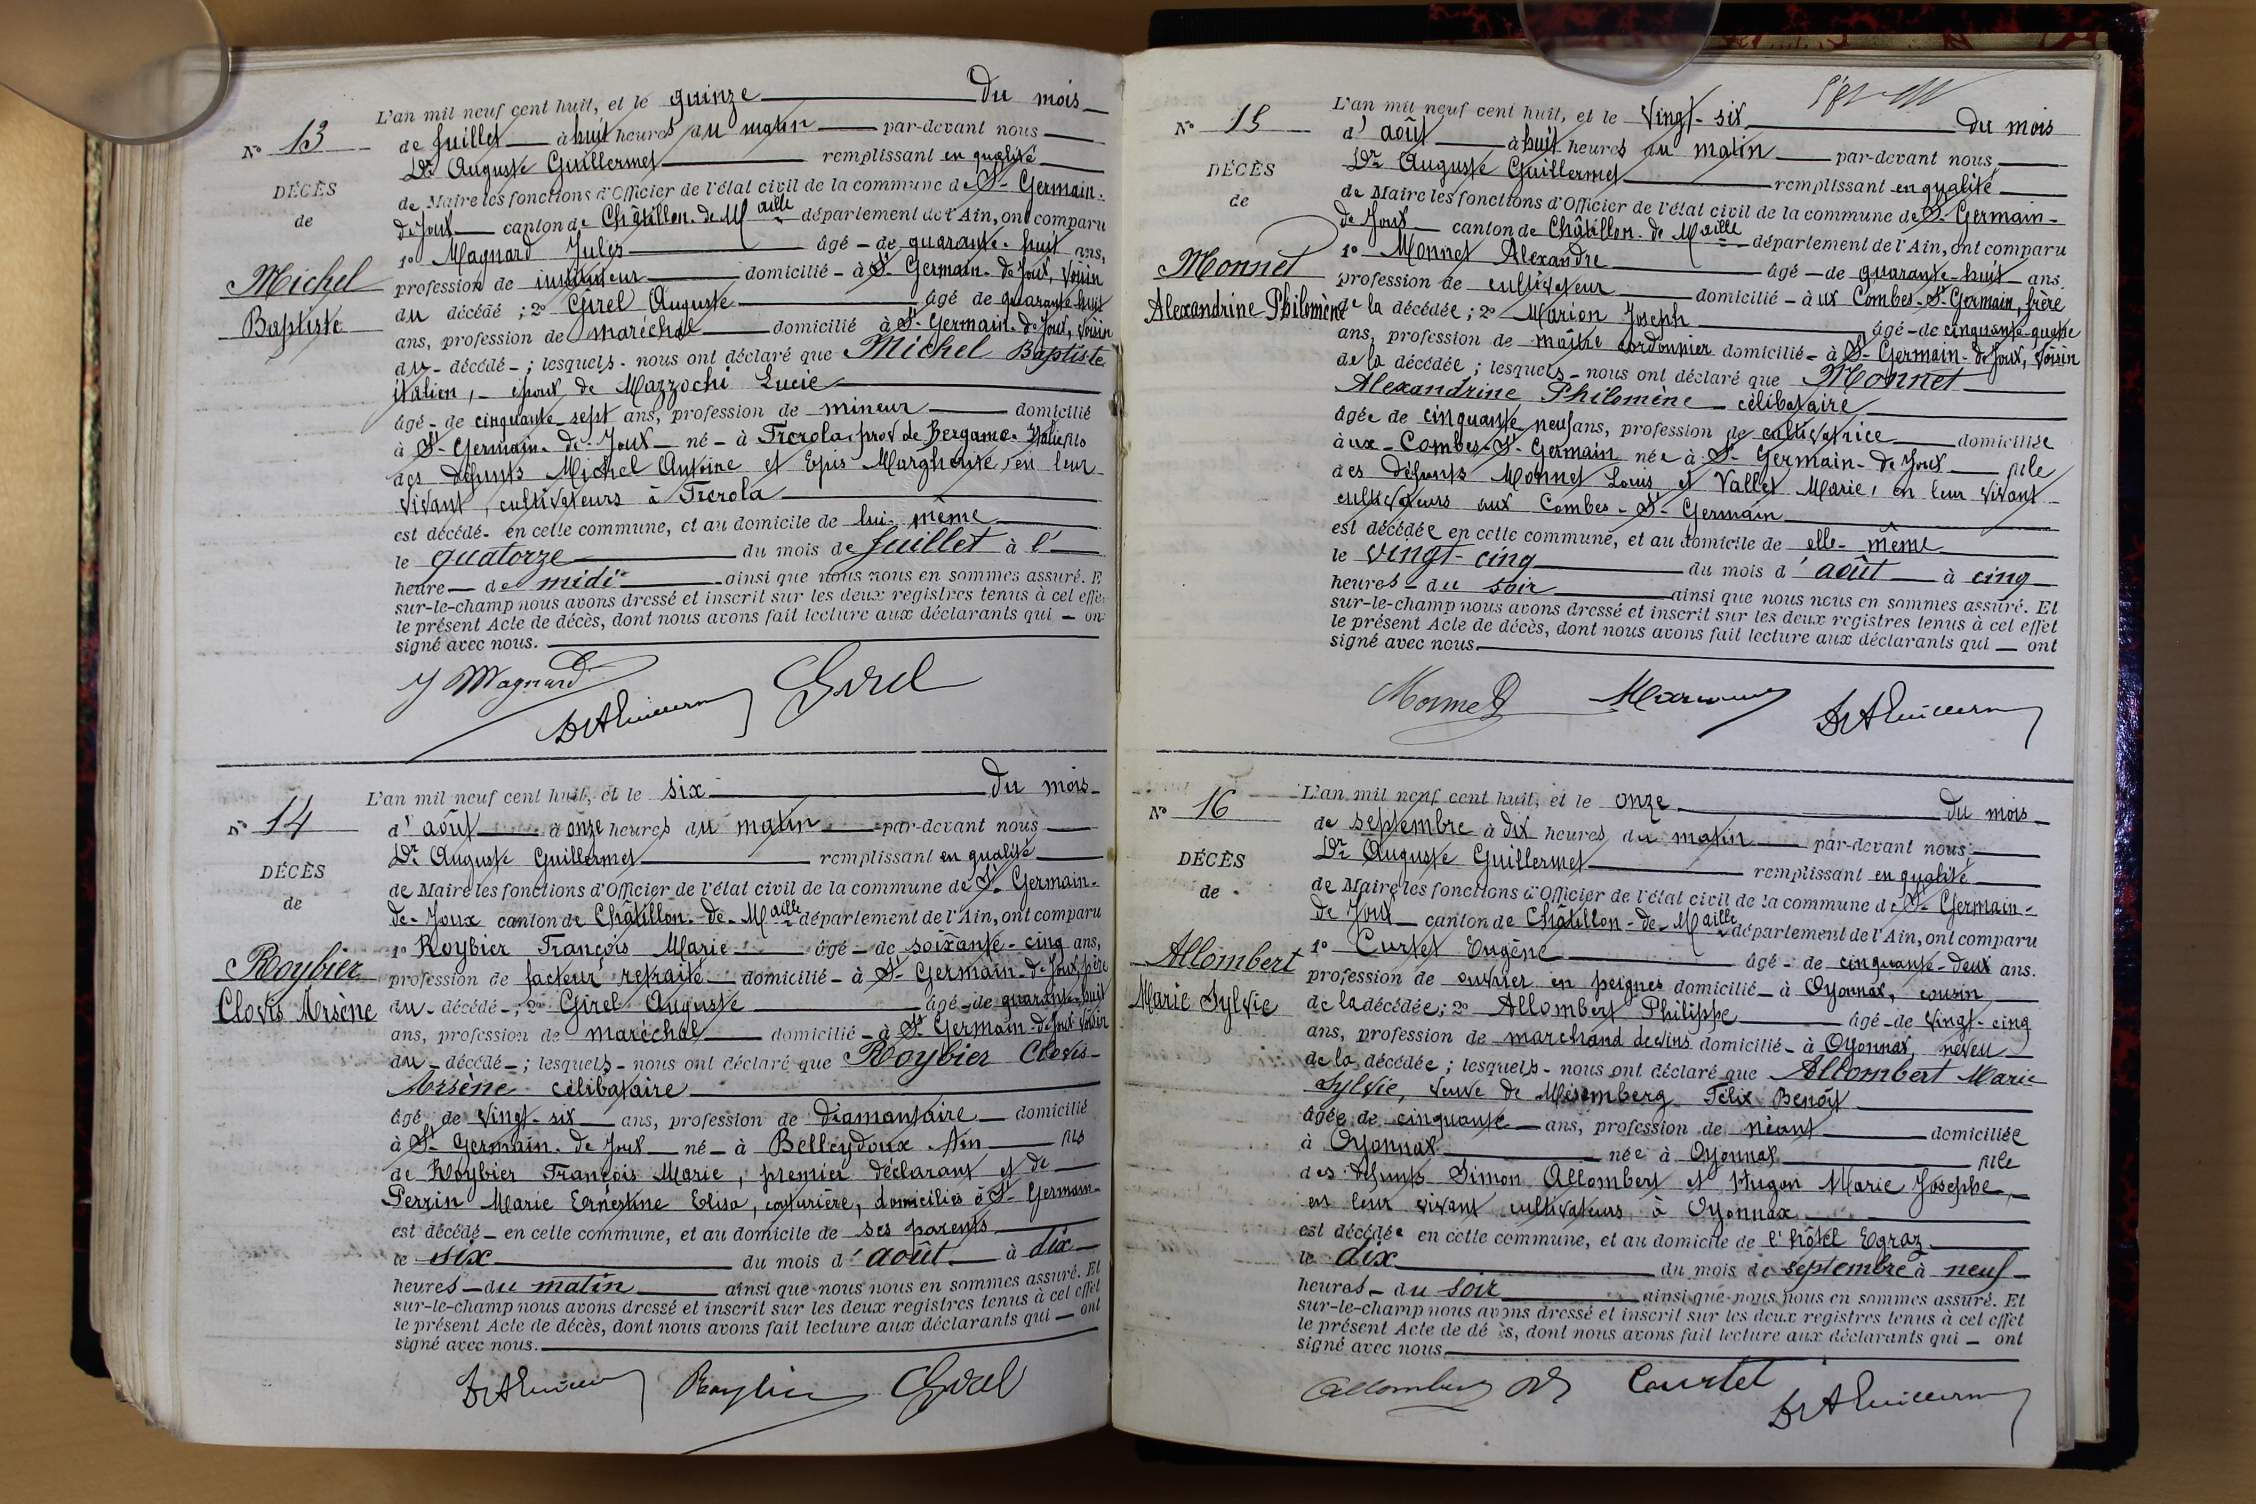 L'an mil neuf cent huit, et le quinze du mois
N° 13
de Juillet à huit heures du matin par-devant nous
Dr Auguste Guillermet remplissant en qualité
DÉCÈS
de Maire les fonctions d'Officier de l'état civil de la commune de St Germain-
de
de Joux canton de Châtillon-de-Maille département de l'Ain, ont comparu
1° Magnard Jules âgé de quarante-huit ans,
Michel
profession de instituteur domicilié à St Germain-de-Joux, voisin
Baptiste
du décédé ; 2° Girel Auguste âgé de quarante-huit
ans, profession de maréchal domicilié à St Germain-de-Joux, voisin
du décédé ; lesquels nous ont déclaré que Michel Baptiste
italien, époux de Mazzochi Lucie
âgé de cinquante sept ans, profession de mineur domicilié
à St Germain-de-Joux né à Frerola, prov de Bergame. Italie fils
des défunts Michel Antoine et Epis Margherite, en leur
vivant, cultivateurs à Frerola
est décédé en cette commune, et au domicile de lui-même
le quatorze du mois de Juillet à l'
heure de midi ainsi que nous nous en sommes assuré. E
sur-le-champ nous avons dressé et inscrit sur les deux registres tenus à cet effet
le présent Acte de décès, dont nous avons fait lecture aux déclarants qui on
signé avec nous.
J Magnard
Girel
Dr A Guillerm
L'an mil neuf cent huit, et le six du mois
N° 14
d'août à onze heures du matin par-devant nous
Dr Auguste Guillermet remplissant en qualité
DÉCÈS
de Maire les fonctions d'Officier de l'état civil de la commune de St Germain-
de
de-Joux canton de Châtillon-de-Maille département de l'Ain, ont comparu
1° Roybier François Marie âgé de soixante-cinq ans,
Roybier
profession de facteur retraité domicilié à St Germain-de-Joux, père
Clovis Arsène
du décédé ; 2° Girel Auguste âgé de quarante-huit
ans, profession de maréchal domicilié à St Germain-de-Joux voisin
du décédé ; lesquels nous ont déclaré que Roybier Clovis-
Arsène célibataire
âgé de vingt-six ans, profession de diamantaire domicilié
à St Germain-de-Joux né à Belleydoux Ain fils
de Roybier François Marie, premier déclarant et de
Perrin Marie Ernestine Elisa, couturière, domiciliés à St Germain-
est décédé en cette commune, et au domicile de ses parents
le six du mois d'août à dix
heures du matin ainsi que nous nous en sommes assuré. Et
sur-le-champ nous avons dressé et inscrit sur les deux registres tenus à cet effet
le présent Acte de décès, dont nous avons fait lecture aux déclarants qui ont
signé avec nous.
Dr A Guillerm Roybier Girel
L'an mil neuf cent huit, et le vingt-six du mois
N° 15
d'août à huit heures du matin par-devant nous
Dr Auguste Guillermet remplissant en qualité
DÉCÈS
de Maire les fonctions d'Officier de l'état civil de la commune de St Germain-
de
de Joux canton de Châtillon-de-Maille département de l'Ain, ont comparu
1° Monnet Alexandre âgé de quarante-huit ans
Monnet
profession de cultivateur domicilié aux Combes-St Germain, frère
Alexandrine Philomène
de la décédée ; 2° Marion Joseph âgé de cinquante-quatre
ans, profession de maître cordonnier domicilié à St Germain-de-Joux, voisin
de la décédée ; lesquels nous ont déclaré que Monnet
Alexandrine Philomène célibataire
âgée de cinquante neuf ans, profession de cultivatrice domiciliée
aux Combes-St Germain née à St Germain-de-Joux fille
des défunts Monnet Louis et Vallet Marie, en leur vivant
cultivateurs aux Combes-St Germain
est décédée en cette commune, et au domicile de elle-même
le vingt-cinq du mois d'août à cinq
heures du soir ainsi que nous nous en sommes assuré. Et
sur-le-champ nous avons dressé et inscrit sur les deux registres tenus à cet effet
le présent Acte de décès, dont nous avons fait lecture aux déclarants qui ont
signé avec nous.
Monnet Marion Dr A Guillerm
L'an mil neuf cent huit, et le onze du mois
N° 16
de septembre à dix heures du matin par-devant nous
Dr Auguste Guillermet remplissant en qualité
DÉCÈS
de Maire les fonctions d'Officier de l'état civil de la commune de St Germain-
de
de Joux canton de Châtillon-de-Maille département de l'Ain, ont comparu
1° Curtet Eugène âgé de cinquante-deux ans.
Allombert
profession de ouvrier en peignes domicilié à Oyonnax, cousin
Marie Sylvie
de la décédée ; 2° Allombert Philippe âgé de vingt-cinq
ans, profession de marchand de vins domicilié à Oyonnax, neveu
de la décédée ; lesquels nous ont déclaré que Allombert Marie
Sylvie, veuve de Mesemberg Félix Benoît
âgée de cinquante ans, profession de néant domiciliée
à Oyonnax née à Oyonnax fille
des défunts Simon Allombert et Hugon Marie Josephe,
en leur vivant cultivateurs à Oyonnax
est décédée en cette commune, et au domicile de l'hôtel Egraz
le dix du mois de septembre à neuf
heures du soir ainsi que nous nous en sommes assuré. Et
sur-le-champ nous avons dressé et inscrit sur les deux registres tenus à cet effet
le présent Acte de décès, dont nous avons fait lecture aux déclarants qui ont
signé avec nous
Allombert Courtet Dr A Guillerm